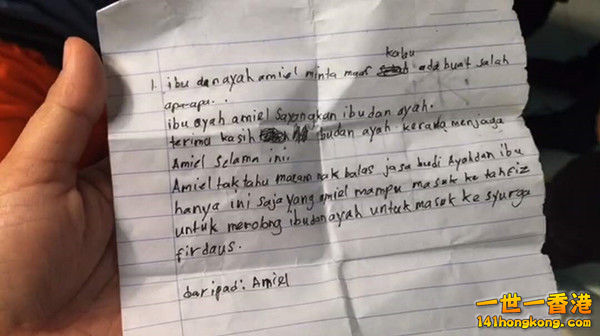 kalau
1. ibu dan ayah amiel minta maaf ada buat salah
apa-apa..
ibu ayah amiel sayangkan ibu dan ayah.
terima kasih ibu dan ayah kerana menjaga
Amiel selama ini.
Amiel tak tahu macam nak balas jasa budi Ayah dan ibu
hanya ini saja yang amiel mampu masuk ke tahfiz
untuk menolong ibu dan ayah untuk masuk ke syurga
firdaus.
daripad: Amiel
一世一香港
141hongkong.com